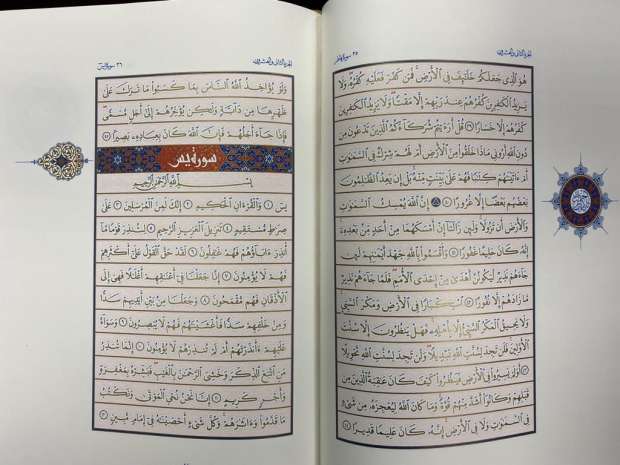 الجزء الثاني والعشرون
٣٥ سورة فاطر
هُوَ الَّذِي جَعَلَكُمْ خَلَٰٓئِفَ فِي الْأَرْضِ فَمَن كَفَرَ فَعَلَيْهِ كُفْرُهُ وَلَا
يَزِيدُ الْكَٰفِرِينَ كُفْرُهُمْ عِندَ رَبِّهِمْ إِلَّا مَقْتًا وَلَا يَزِيدُ الْكَٰفِرِينَ
كُفْرُهُمْ إِلَّا خَسَارًا ٣٩ قُلْ أَرَءَيْتُمْ شُرَكَآءَكُمُ الَّذِينَ تَدْعُونَ مِن
دُونِ اللَّهِ أَرُونِي مَاذَا خَلَقُوا مِنَ الْأَرْضِ أَمْ لَهُمْ شِرْكٌ فِي السَّمَٰوَٰتِ
أَمْ ءَاتَيْنَٰهُمْ كِتَٰبًا فَهُمْ عَلَىٰ بَيِّنَتٍ مِّنْهُ بَلْ إِن يَعِدُ الظَّٰلِمُونَ
بَعْضُهُم بَعْضًا إِلَّا غُرُورًا ٤٠ إِنَّ اللَّهَ يُمْسِكُ السَّمَٰوَٰتِ
وَالْأَرْضَ أَن تَزُولَا وَلَئِن زَالَتَآ إِنْ أَمْسَكَهُمَا مِنْ أَحَدٍ مِّن بَعْدِهِ
إِنَّهُ كَانَ حَلِيمًا غَفُورًا ٤١ وَأَقْسَمُوا بِاللَّهِ جَهْدَ أَيْمَٰنِهِمْ لَئِن
جَآءَهُمْ نَذِيرٌ لَّيَكُونُنَّ أَهْدَىٰ مِنْ إِحْدَى الْأُمَمِ فَلَمَّا جَآءَهُمْ نَذِيرٌ
مَّا زَادَهُمْ إِلَّا نُفُورًا ٤٢ اسْتِكْبَارًا فِي الْأَرْضِ وَمَكْرَ السَّيِّئِ
وَلَا يَحِيقُ الْمَكْرُ السَّيِّئُ إِلَّا بِأَهْلِهِ فَهَلْ يَنظُرُونَ إِلَّا سُنَّتَ
الْأَوَّلِينَ فَلَن تَجِدَ لِسُنَّتِ اللَّهِ تَبْدِيلًا وَلَن تَجِدَ لِسُنَّتِ اللَّهِ تَحْوِيلًا
٤٣ أَوَلَمْ يَسِيرُوا فِي الْأَرْضِ فَيَنظُرُوا كَيْفَ كَانَ عَٰقِبَةُ الَّذِينَ مِن
قَبْلِهِمْ وَكَانُوا أَشَدَّ مِنْهُمْ قُوَّةً وَمَا كَانَ اللَّهُ لِيُعْجِزَهُ مِن شَيْءٍ
فِي السَّمَٰوَٰتِ وَلَا فِي الْأَرْضِ إِنَّهُ كَانَ عَلِيمًا قَدِيرًا ٤٤
الجزء الثاني والعشرون
٣٦ سورة يس
وَلَوْ يُؤَاخِذُ اللَّهُ النَّاسَ بِمَا كَسَبُوا مَا تَرَكَ عَلَىٰ
ظَهْرِهَا مِن دَآبَّةٍ وَلَٰكِن يُؤَخِّرُهُمْ إِلَىٰٓ أَجَلٍ مُّسَمًّى
فَإِذَا جَآءَ أَجَلُهُمْ فَإِنَّ اللَّهَ كَانَ بِعِبَادِهِ بَصِيرًا ٤٥
سورة يس
بِسْمِ اللَّهِ الرَّحْمَٰنِ الرَّحِيمِ
يسٓ ١ وَالْقُرْءَانِ الْحَكِيمِ ٢ إِنَّكَ لَمِنَ الْمُرْسَلِينَ ٣ عَلَىٰ
صِرَٰطٍ مُّسْتَقِيمٍ ٤ تَنزِيلَ الْعَزِيزِ الرَّحِيمِ ٥ لِتُنذِرَ قَوْمًا مَّآ
أُنذِرَ ءَابَآؤُهُمْ فَهُمْ غَٰفِلُونَ ٦ لَقَدْ حَقَّ الْقَوْلُ عَلَىٰٓ أَكْثَرِهِمْ
فَهُمْ لَا يُؤْمِنُونَ ٧ إِنَّا جَعَلْنَا فِيٓ أَعْنَٰقِهِمْ أَغْلَٰلًا فَهِيَ إِلَى
الْأَذْقَانِ فَهُم مُّقْمَحُونَ ٨ وَجَعَلْنَا مِن بَيْنِ أَيْدِيهِمْ سَدًّا
وَمِنْ خَلْفِهِمْ سَدًّا فَأَغْشَيْنَٰهُمْ فَهُمْ لَا يُبْصِرُونَ ٩ وَسَوَآءٌ
عَلَيْهِمْ ءَأَنذَرْتَهُمْ أَمْ لَمْ تُنذِرْهُمْ لَا يُؤْمِنُونَ ١٠ إِنَّمَا تُنذِرُ
مَنِ اتَّبَعَ الذِّكْرَ وَخَشِيَ الرَّحْمَٰنَ بِالْغَيْبِ فَبَشِّرْهُ بِمَغْفِرَةٍ
وَأَجْرٍ كَرِيمٍ ١١ إِنَّا نَحْنُ نُحْيِ الْمَوْتَىٰ وَنَكْتُبُ
مَا قَدَّمُوا وَءَاثَٰرَهُمْ وَكُلَّ شَيْءٍ أَحْصَيْنَٰهُ فِيٓ إِمَامٍ مُّبِينٍ ١٢